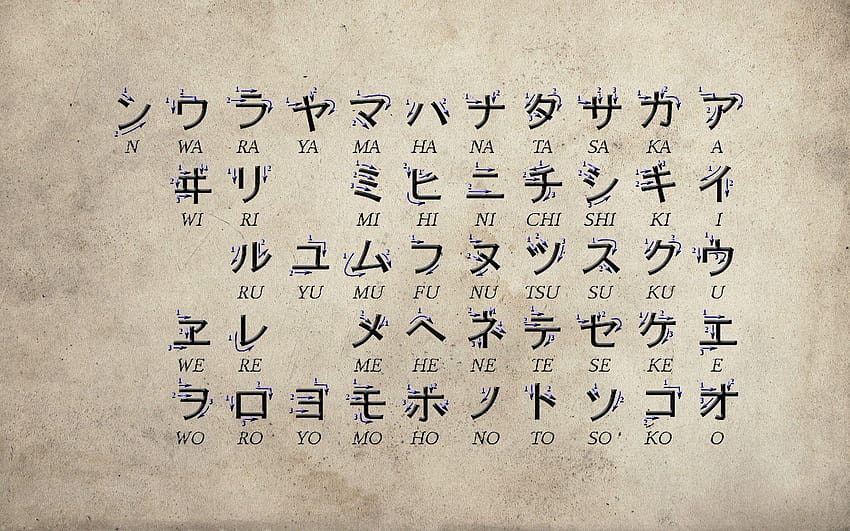 ン ワ ラ ヤ マ ハ ナ タ サ カ ア
N WA RA YA MA HA NA TA SA KA A
ヰ リ ミ ヒ ニ チ シ キ イ
WI RI MI HI NI CHI SHI KI I
ル ユ ム フ ヌ ツ ス ク ウ
RU YU MU FU NU TSU SU KU U
ヱ レ メ ヘ ネ テ セ ケ エ
WE RE ME HE NE TE SE KE E
ヲ ロ ヨ モ ホ ノ ト ソ コ オ
WO RO YO MO HO NO TO SO KO O